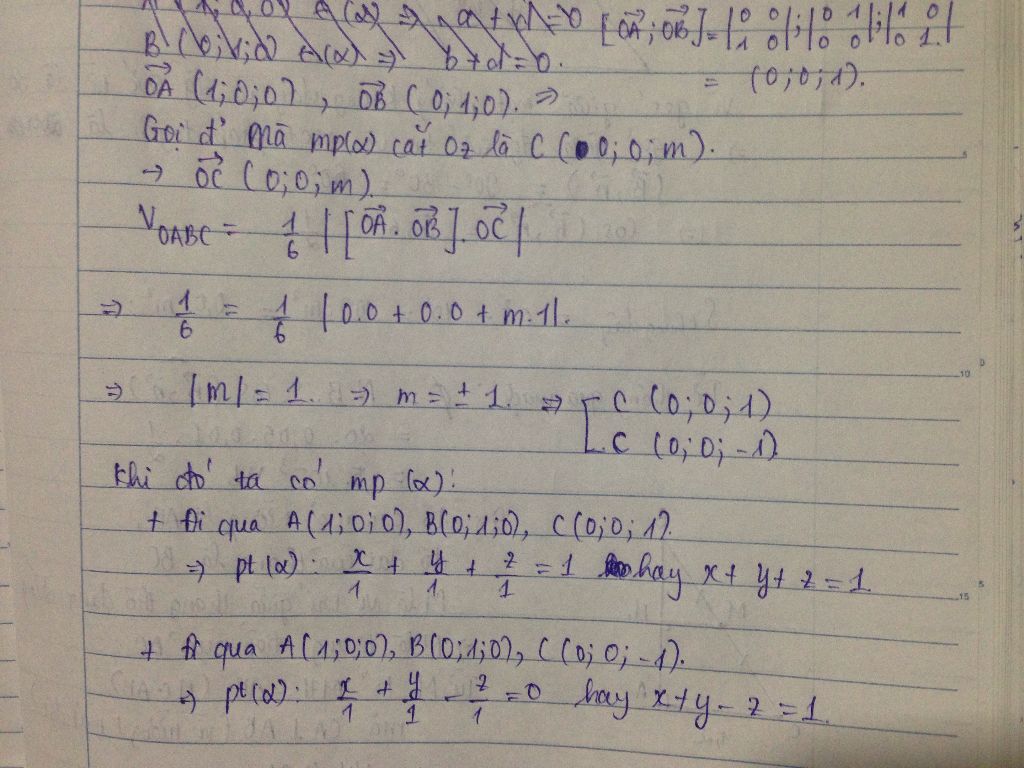 A(α) ⇒ a + d = 0 [OA→; OB→] = |0 0; 1 0|; |0 1; 0 0|; |1 0; 0 1|
B (0; 1; 0) ∈ (α) ⇒ b + d = 0. = (0; 0; 1).
OA→ (1; 0; 0), OB→ (0; 1; 0). ⇒
Gọi đ' mà mp(α) cắt Oz là C (0; 0; m).
→ OC→ (0; 0; m)
V_OABC = 1/6 |[OA→ . OB→]. OC→|
⇒ 1/6 = 1/6 |0.0 + 0.0 + m.1|.
⇒ |m| = 1. ⇒ m = ± 1. ⇒ [ C (0; 0; 1)
C (0; 0; -1)
Khi đó ta có mp (α):
+ Đi qua A(1; 0; 0), B(0; 1; 0), C(0; 0; 1).
⇒ pt (α): x/1 + y/1 + z/1 = 1 hay x + y + z = 1
+ Đi qua A(1; 0; 0), B(0; 1; 0), C(0; 0; -1).
⇒ pt(α): x/1 + y/1 - z/1 = 0 hay x + y - z = 1.
10
15